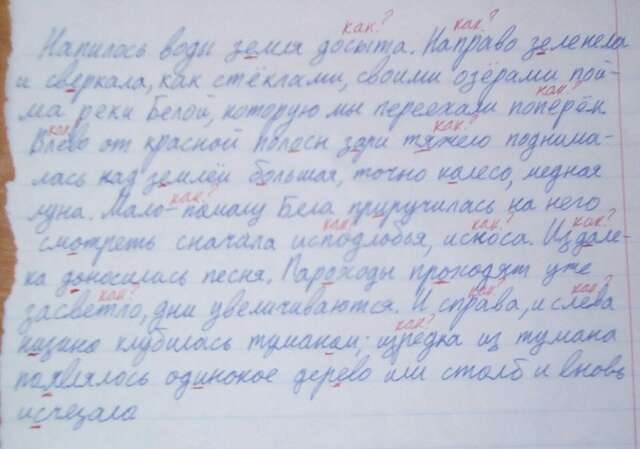 как? как?
Напилось воды земля досыта. Направо зеленела
и сверкала, как стёклами, своими озёрами пой-
ма реки Белой, которую мы переехали поперёк
как? как? как?
Влево от красной полосы зари тяжело поднима-
лась над землёй большая, точно колесо, медная
луна. Мало-помалу Бела приручилась на него
как? как? как? как?
смотреть сначала исподлобья, искоса. Издале-
ка доносилась песня. Пароходы проходят уже
как? как? как?
засветло, дни увеличиваются. И справа, и слева
низина клубилась туманом; изредка из тумана
как?
появлялось одинокое дерево или столб и вновь
исчезала